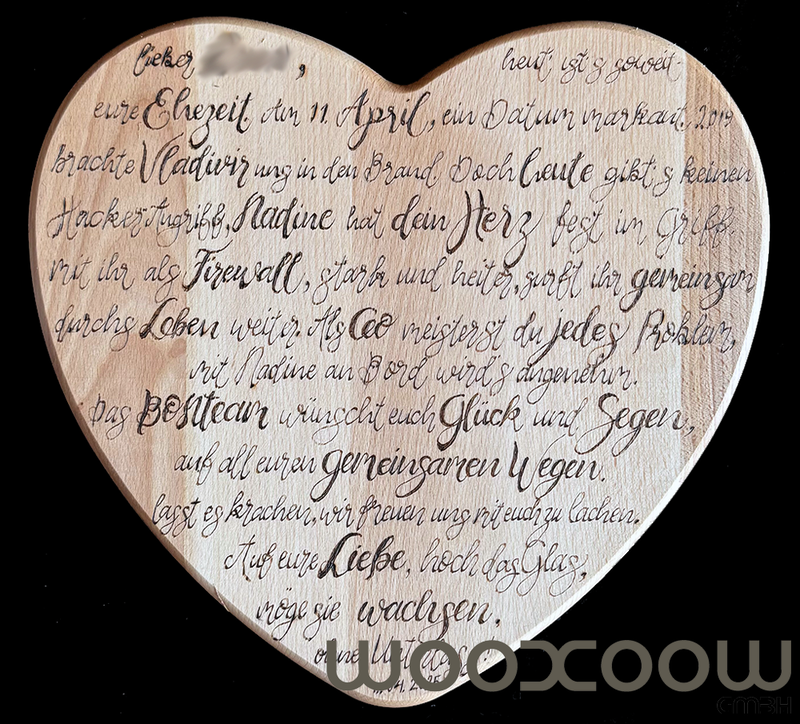 lieber , heut ist's soweit
eure Ehezeit. Am 11. April, ein Datum markant, 2019
brachte Vladiwir uns in den Brand. Doch heute gibt's keinen
Hacker Angriff, Nadine hat dein Herz fest im Griff.
mit ihr als Firewall, stark und heiter, surft ihr gemeinsam
durchs Leben weiter. Als CEO meisterst du jedes Problem,
mit Nadine an Bord wird's angenehm.
Das BOSTteam wünscht euch Glück und Segen,
auf all euren gemeinsamen Wegen.
lasst es krachen, wir freuen uns mit euch zu lachen.
Auf eure Liebe, hoch das Glas,
möge sie wachsen,
ohne
WOOXOOW
GMBH